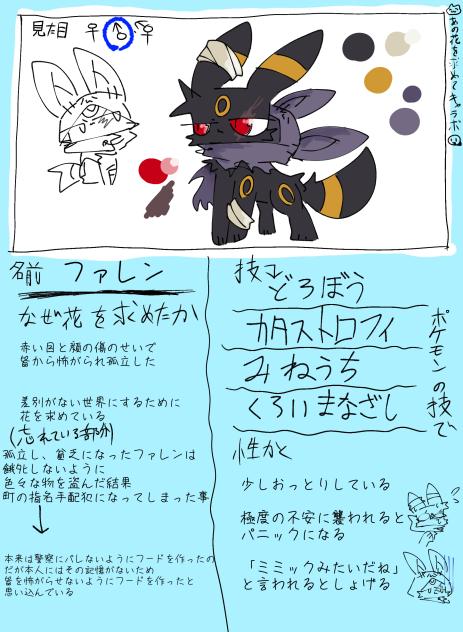 見た目 ♀ ♂ ⚥
あの花を求めてキャラボ
名前 ファレン
なぜ花を求めたか
赤い目と顔の傷のせいで
皆から怖がられ孤立した
差別がない世界にするために
花を求めている
(忘れている部分)
孤立し、貧乏になったファレンは
餓死しないように
色々な物を盗んだ結果
町の指名手配犯になってしまった事
本来は警察にバレないようにフードを作ったの
だが本人にはその記憶がないため
皆を怖がらせないようにフードを作ったと
思い込んでいる
技
どろぼう
カタストロフィ
みねうち
くろいまなざし
ポケモンの技で
性かく
少しおっとりしている
極度の不安に襲われると
パニックになる
「ミミックみたいだね」
と言われるとしょげる